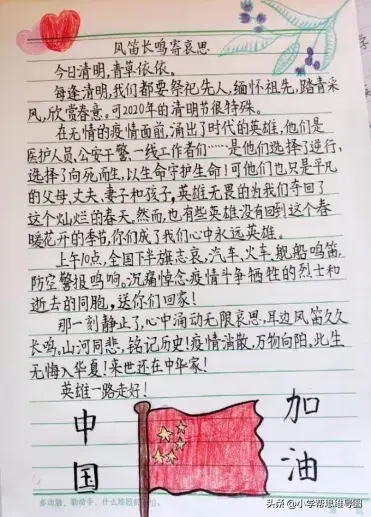 风笛长鸣寄哀思
今日清明,青草依依。
每逢清明,我们都要祭祀先人,缅怀祖先,踏青采
风,欣赏春意。可2020年的清明节很特殊。
在无情的疫情面前,涌出了时代的英雄,他们是
医护人员,公安干警,一线工作者们……是他们选择了逆行,
选择了向死而生,以生命守护生命!可他们也只是平凡
的父母、丈夫、妻子和孩子,英雄无畏的为我们夺回了
这个灿烂的春天,然而,也有些英雄没有回到这个春
暖花开的季节,你们成了我们心中永远英雄。
上午10点,全国下半旗志哀,汽车,火车,舰船鸣笛,
防空警报鸣响。沉痛悼念疫情斗争牺牲的烈士和
逝去的同胞,送你们回家!
那一刻静止了,心中涌动无限哀思,耳边风笛久久
长鸣。山河同悲,铭记历史!疫情消散,万物向阳,此生
无悔入华夏!来世还在中华家!
英雄一路走好!
中国
加油
多动脑,勤动手,什么难题都
头条@小学帮思维导图